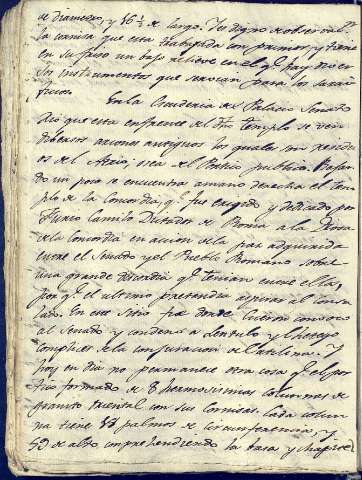 de diametro, y 16 ½ de largo. Es digno de observar.
la cornisa que esta trabajada con primor, y tiene
en su friso un bajo relieve en el q.e hay diver
sos instrumentos que servian para los sacri
ficios.
En la Escaleria del Palacio Senato
rio que esta enfrente del dho templo se ven
diversos arcones antiguos los quales son residu
os del Atrio, ó sea del Portico publico. Pasan
do un poco se encuentra amano derecha el tem
plo de la Concordia, q.e fue erigido y dedicado por
Furio Camilo Dictador de Roma a la Diosa
de la Concordia en accion de la paz adquirida
entre el Senado y el Pueblo Romano sobre
una grande discordia q.e tenian entre ellos,
por q.e el ultimo pretendia aspirar al consu
lado. En este sitio fue donde Ciceron convoco
al Senado y condenó a Lentulo y Cetego
complices de la conjuracion de Catilina. Y
hoy en dia no permanece otra cosa q.e el por
tico formado de 8 hermosisimas columnas de
granito oriental con sus cornisas. Cada colum
na tiene 18 palmos de circunferencia, y
59 de alto comprehendiendo la basa y chapitel